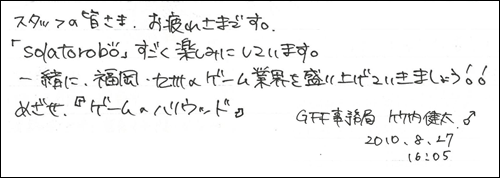 スタッフの皆さま、お疲れさまです。
「solatorobo」すごく楽しみにしています。
一緒に、福岡・九州のゲーム業界を盛り上げていきましょう!!
めざせ、『ゲームのハリウッド』
GFF事務局 竹内健太
2010.8.27
16:05